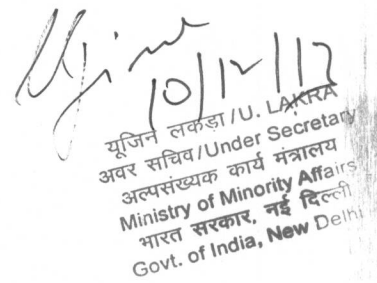 10/12/12
यूजिन लकड़ा/U. LAKRA
अवर सचिव/Under Secretary
अल्पसंख्यक कार्य मंत्रालय
Ministry of Minority Affairs
भारत सरकार, नई दिल्ली
Govt. of India, New Delhi